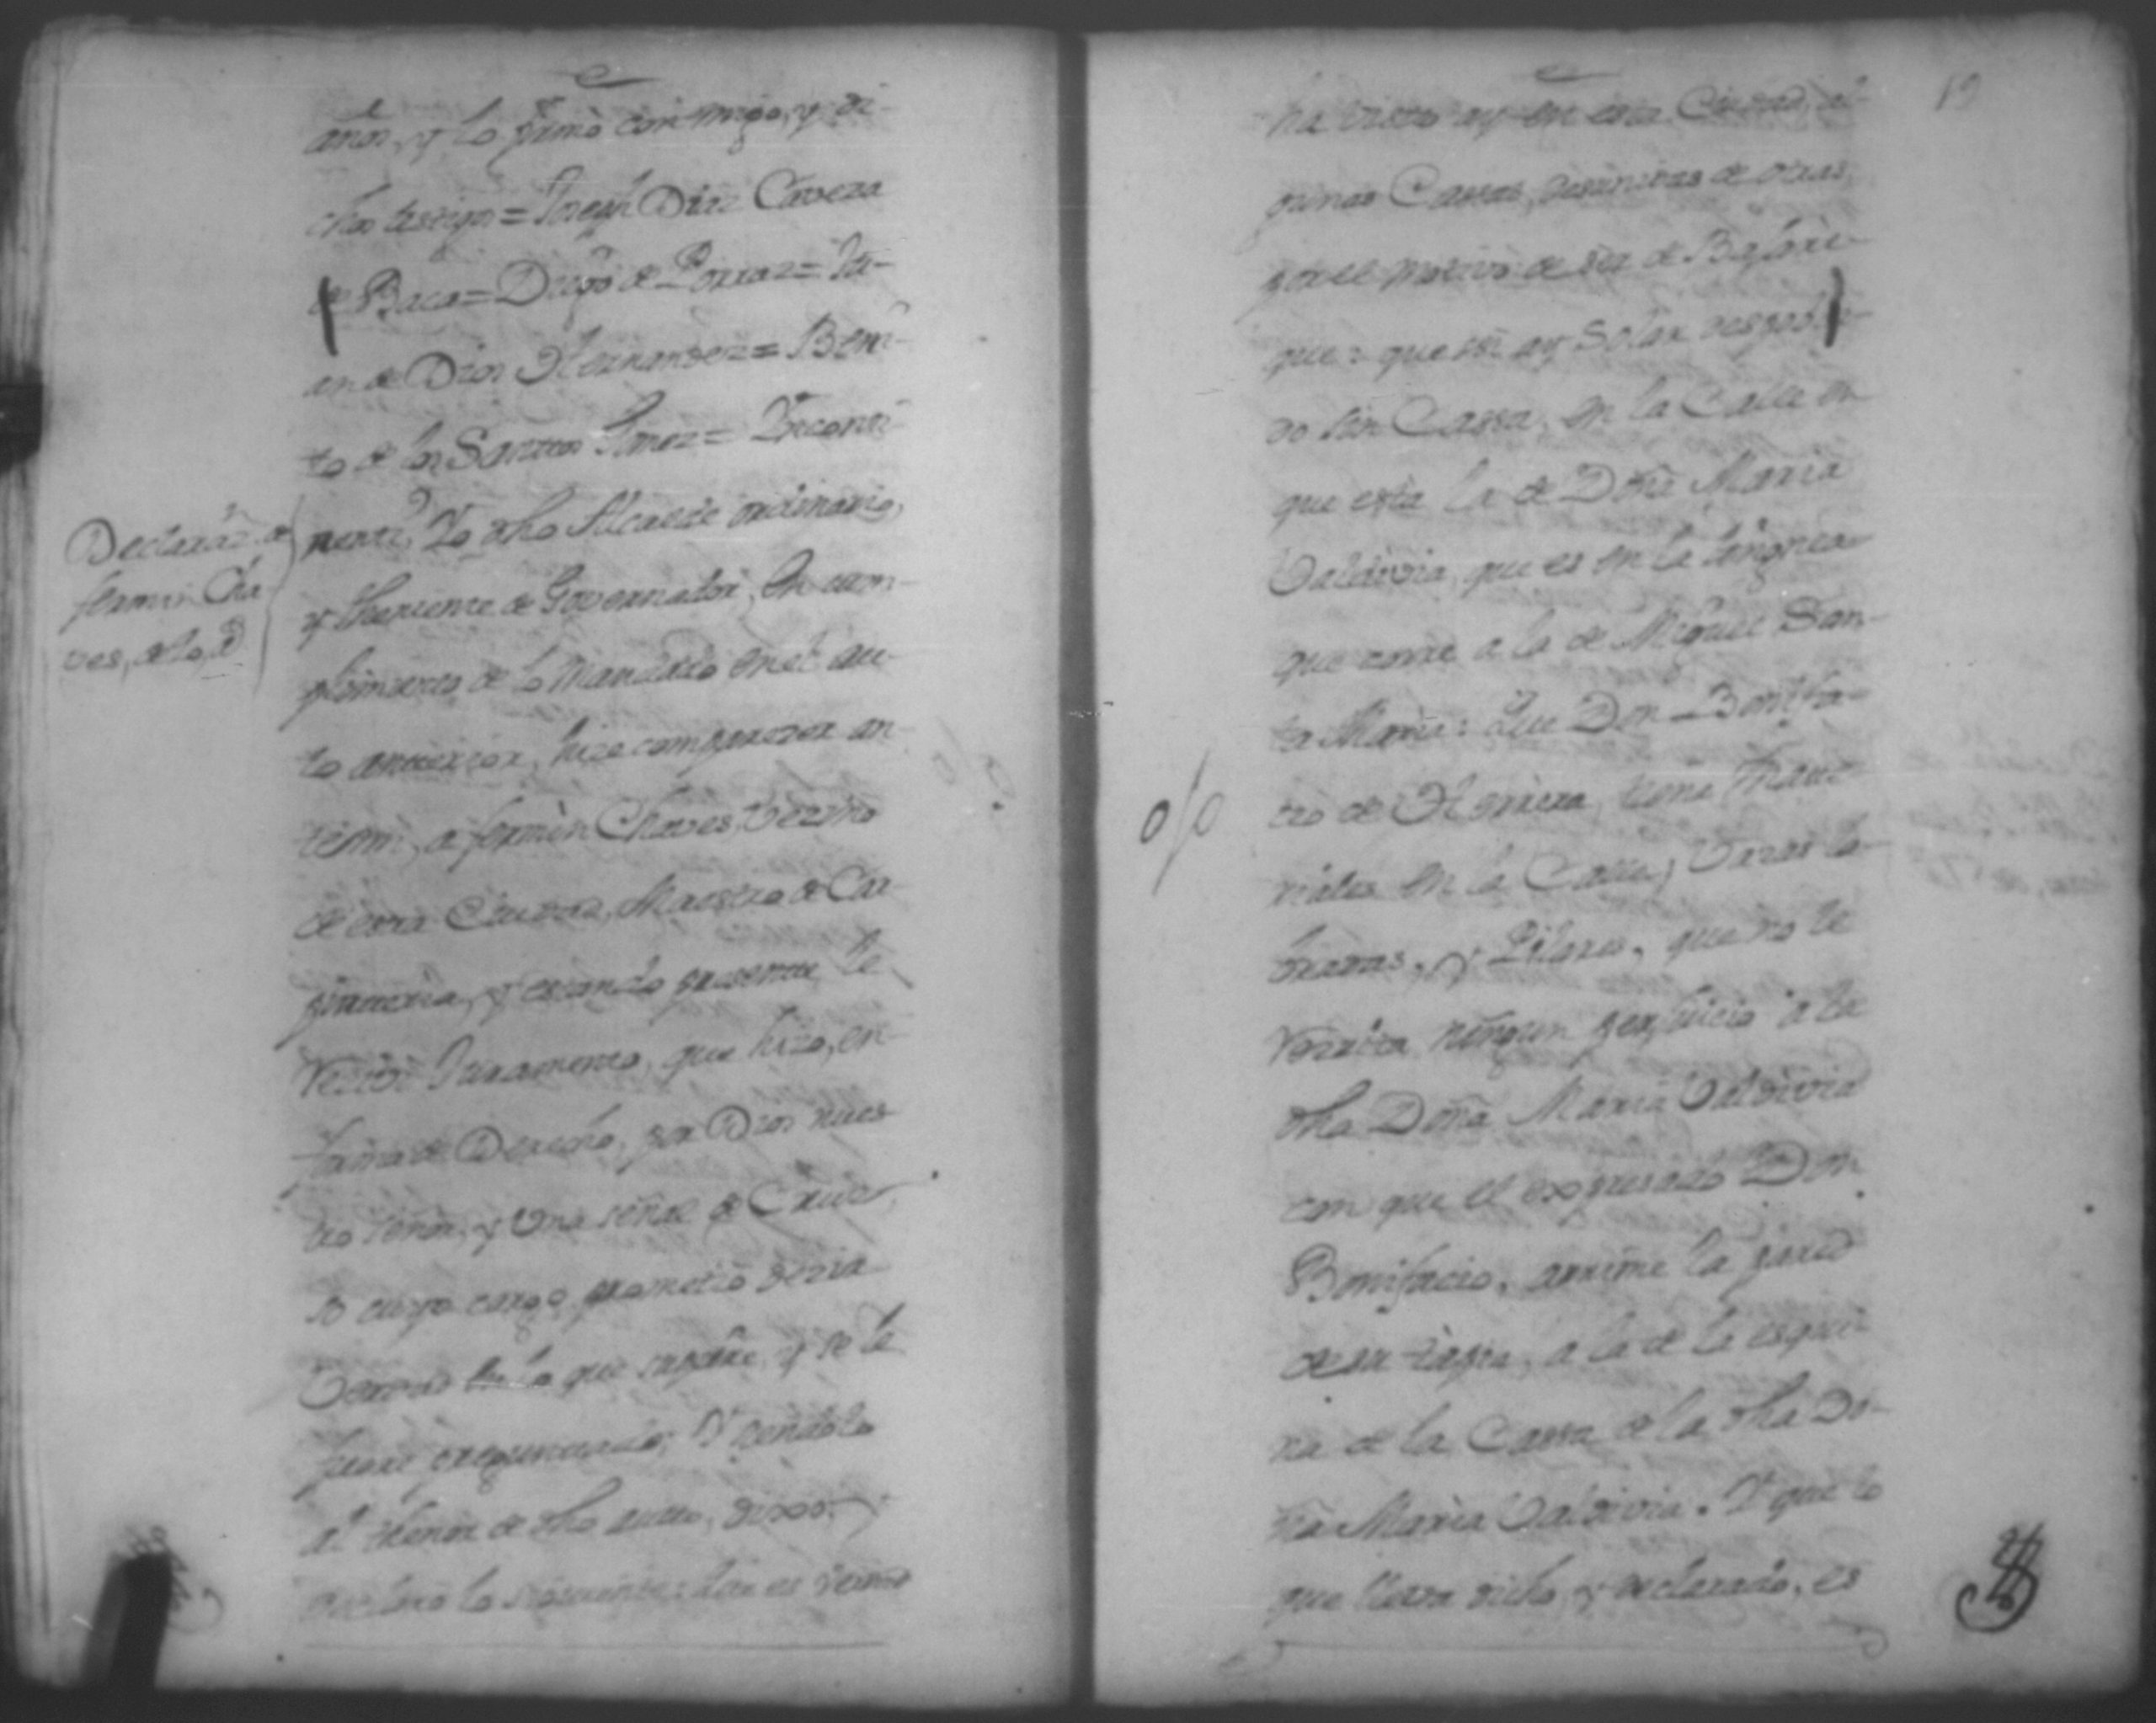 años, y lo firmò con migo, y di-
chos testigos = Joseph Diaz Caveza
de Baca = Diego de Porraz = Ju-
an de Dios Hernandez = Beni-
to de los Santtos = Yncontti-
nentt, Yo dho Alcalde ordinario,
y theniente de Governador, En cum-
plimiento de lo mandado en el au-
to antterior, hize comparezer an-
te mi, a fermin Chaves, vezino
de esta Ciudad, Maestro de Car-
pinteria, y estando presente le
Recivi Juramento, que hizo, en
forma de Derecho, por Dios nues
tro señor, y Una señal de Cruz
so cuyo cargo prometio dezir
Verdad en lo que supiere, y se le
fuere preguntado; Y siendolo
al thenor de dho autto, dixo:
declaro lo siguiente: Que es
Declaraz.n de
fermin Cha
ves,
19
ha visto ay en esta Ciudad, al-
gunas Cassas, de otras,
por el motivo de ser de
que: que si ay Solar despobla-
do sin Cassa, en la Calle en
que esta la de Doña Maria
Valdivia, que es en la
que corre a la de Miguel San-
ta Maria: Que Don Bonifa-
cio de Herrera, tiene mate-
riales en la Calle, Varas la-
bradas, y Pilares, que no le
Resulta ningun perjuicio a la
dha Doña Maria Valdivia
con que el expresado Don
Bonifacio, arrime la pared
de su tapia, a la de la esqui-
na de la Cassa de la dha Do-
ña Maria Valdivia. Y que lo
que lleva dicho, y declarado, es